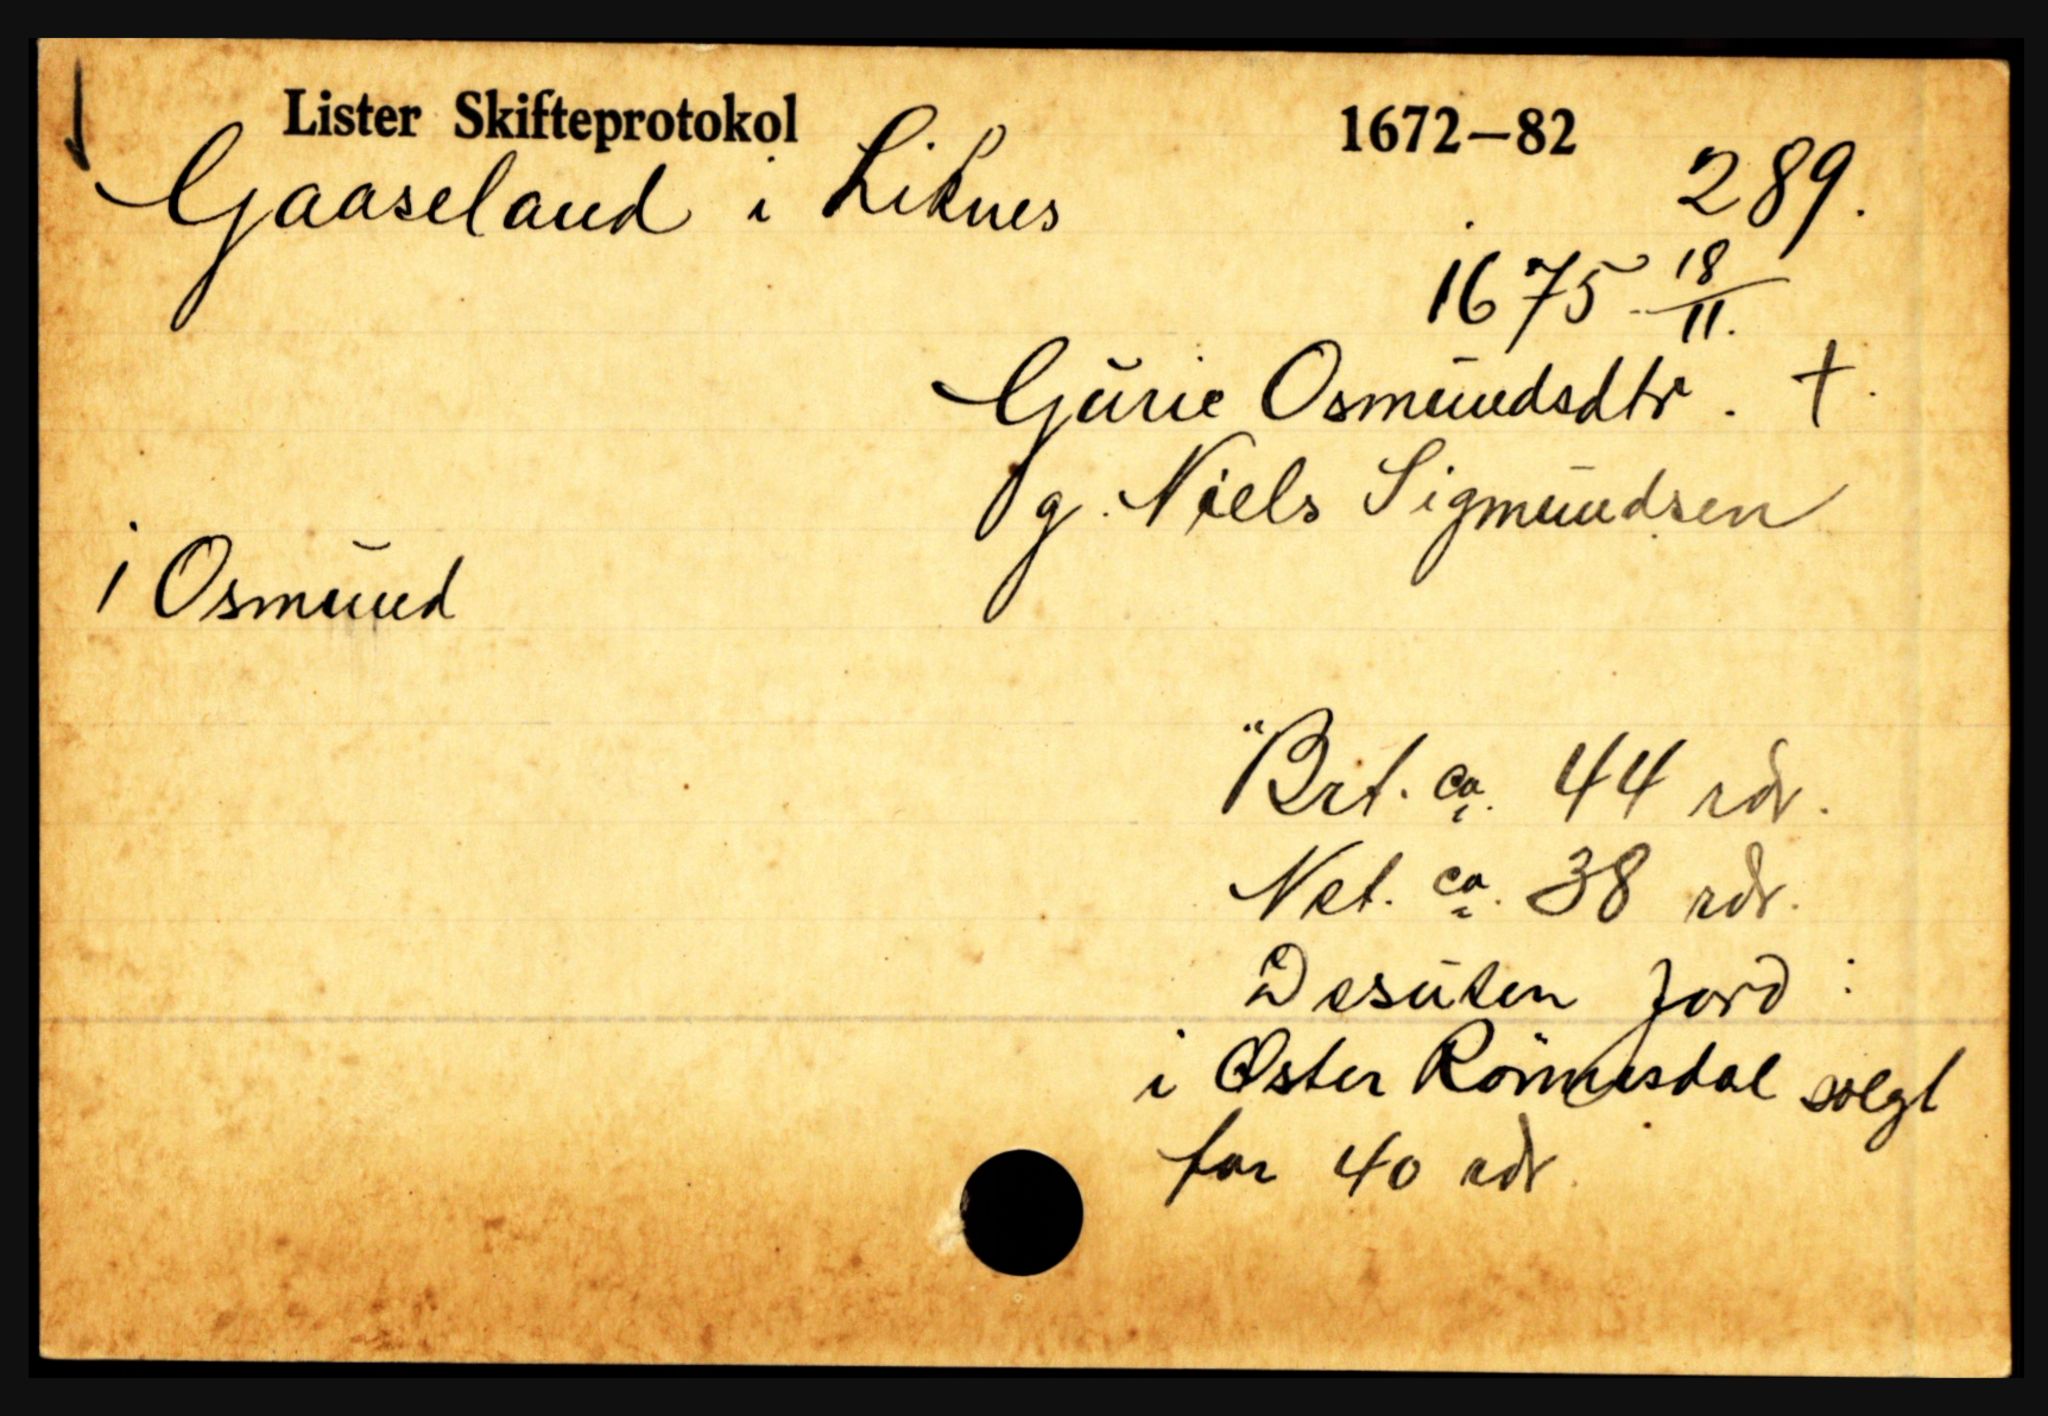 Lister Skifteprotokol 1672–82
Gaaseland i Liknes 289.
1675 18/11.
Gurie Osmundsdtr. †.
g. Niels Sigmundsen
1 Osmund
Brt. ca. 44 rdr.
Net. ca. 38 rdr.
Desuten Jord :
i Øster Römesdal solgt
for 40 rdr.